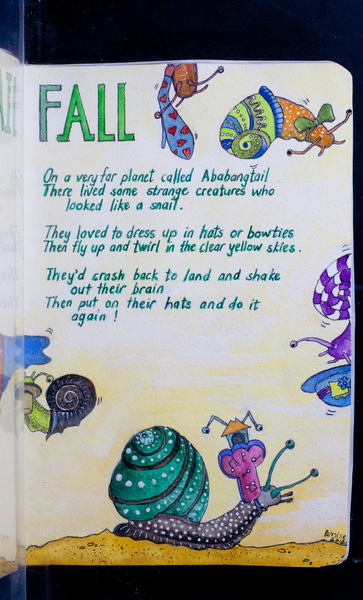 FALL
On a very far planet called Ababangtail
There lived some strange creatures who
looked like a snail.
They loved to dress up in hats or bowties
Then fly up and twirl in the clear yellow skies.
They'd crash back to land and shake
out their brain
Then put on their hats and do it
again!